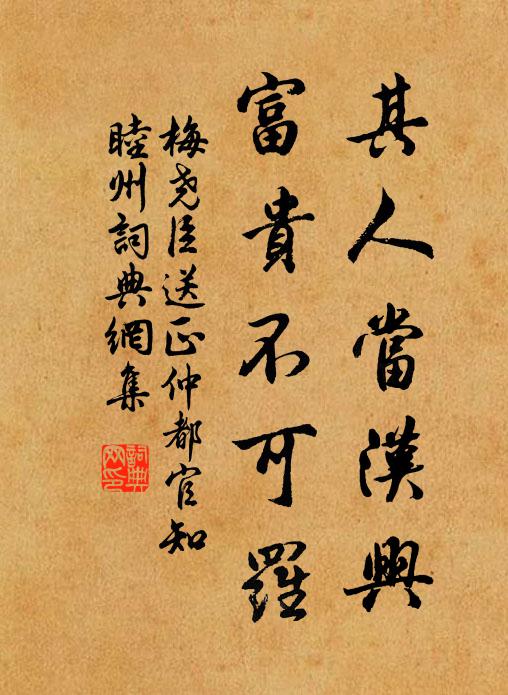 其人當漢興
富貴不可羅
梅尧臣送正仲都官知
睦州詞典網集
詞典網印